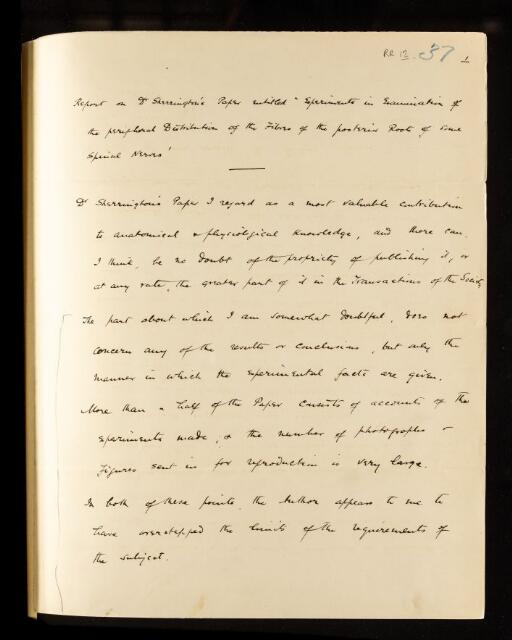 RR 12. 37 1
Report on Dr Sherrington's Paper entitled "Experiments in Examination of
the peripheral Distribution of the Fibres of the posterior Roots of some
Spinal Nerves'
Dr Sherrington's Paper I regard as a most valuable contribution
to anatomical & physiological knowledge, and there can,
I think, be no doubt of the propriety of publishing it, or
at any rate, the greater part of it in the Transactions of the Society
The part about which I am somewhat doubtful, does not
concern any of the results or conclusions, but only the
manner in which the experimental facts are given.
More than a half of the Paper consists of accounts of the
experiments made, & the number of photographs or
figures sent in for reproduction is very large.
In both of these points, the Author appears to me to
have overstepped the limits of the requirements of
the subject.